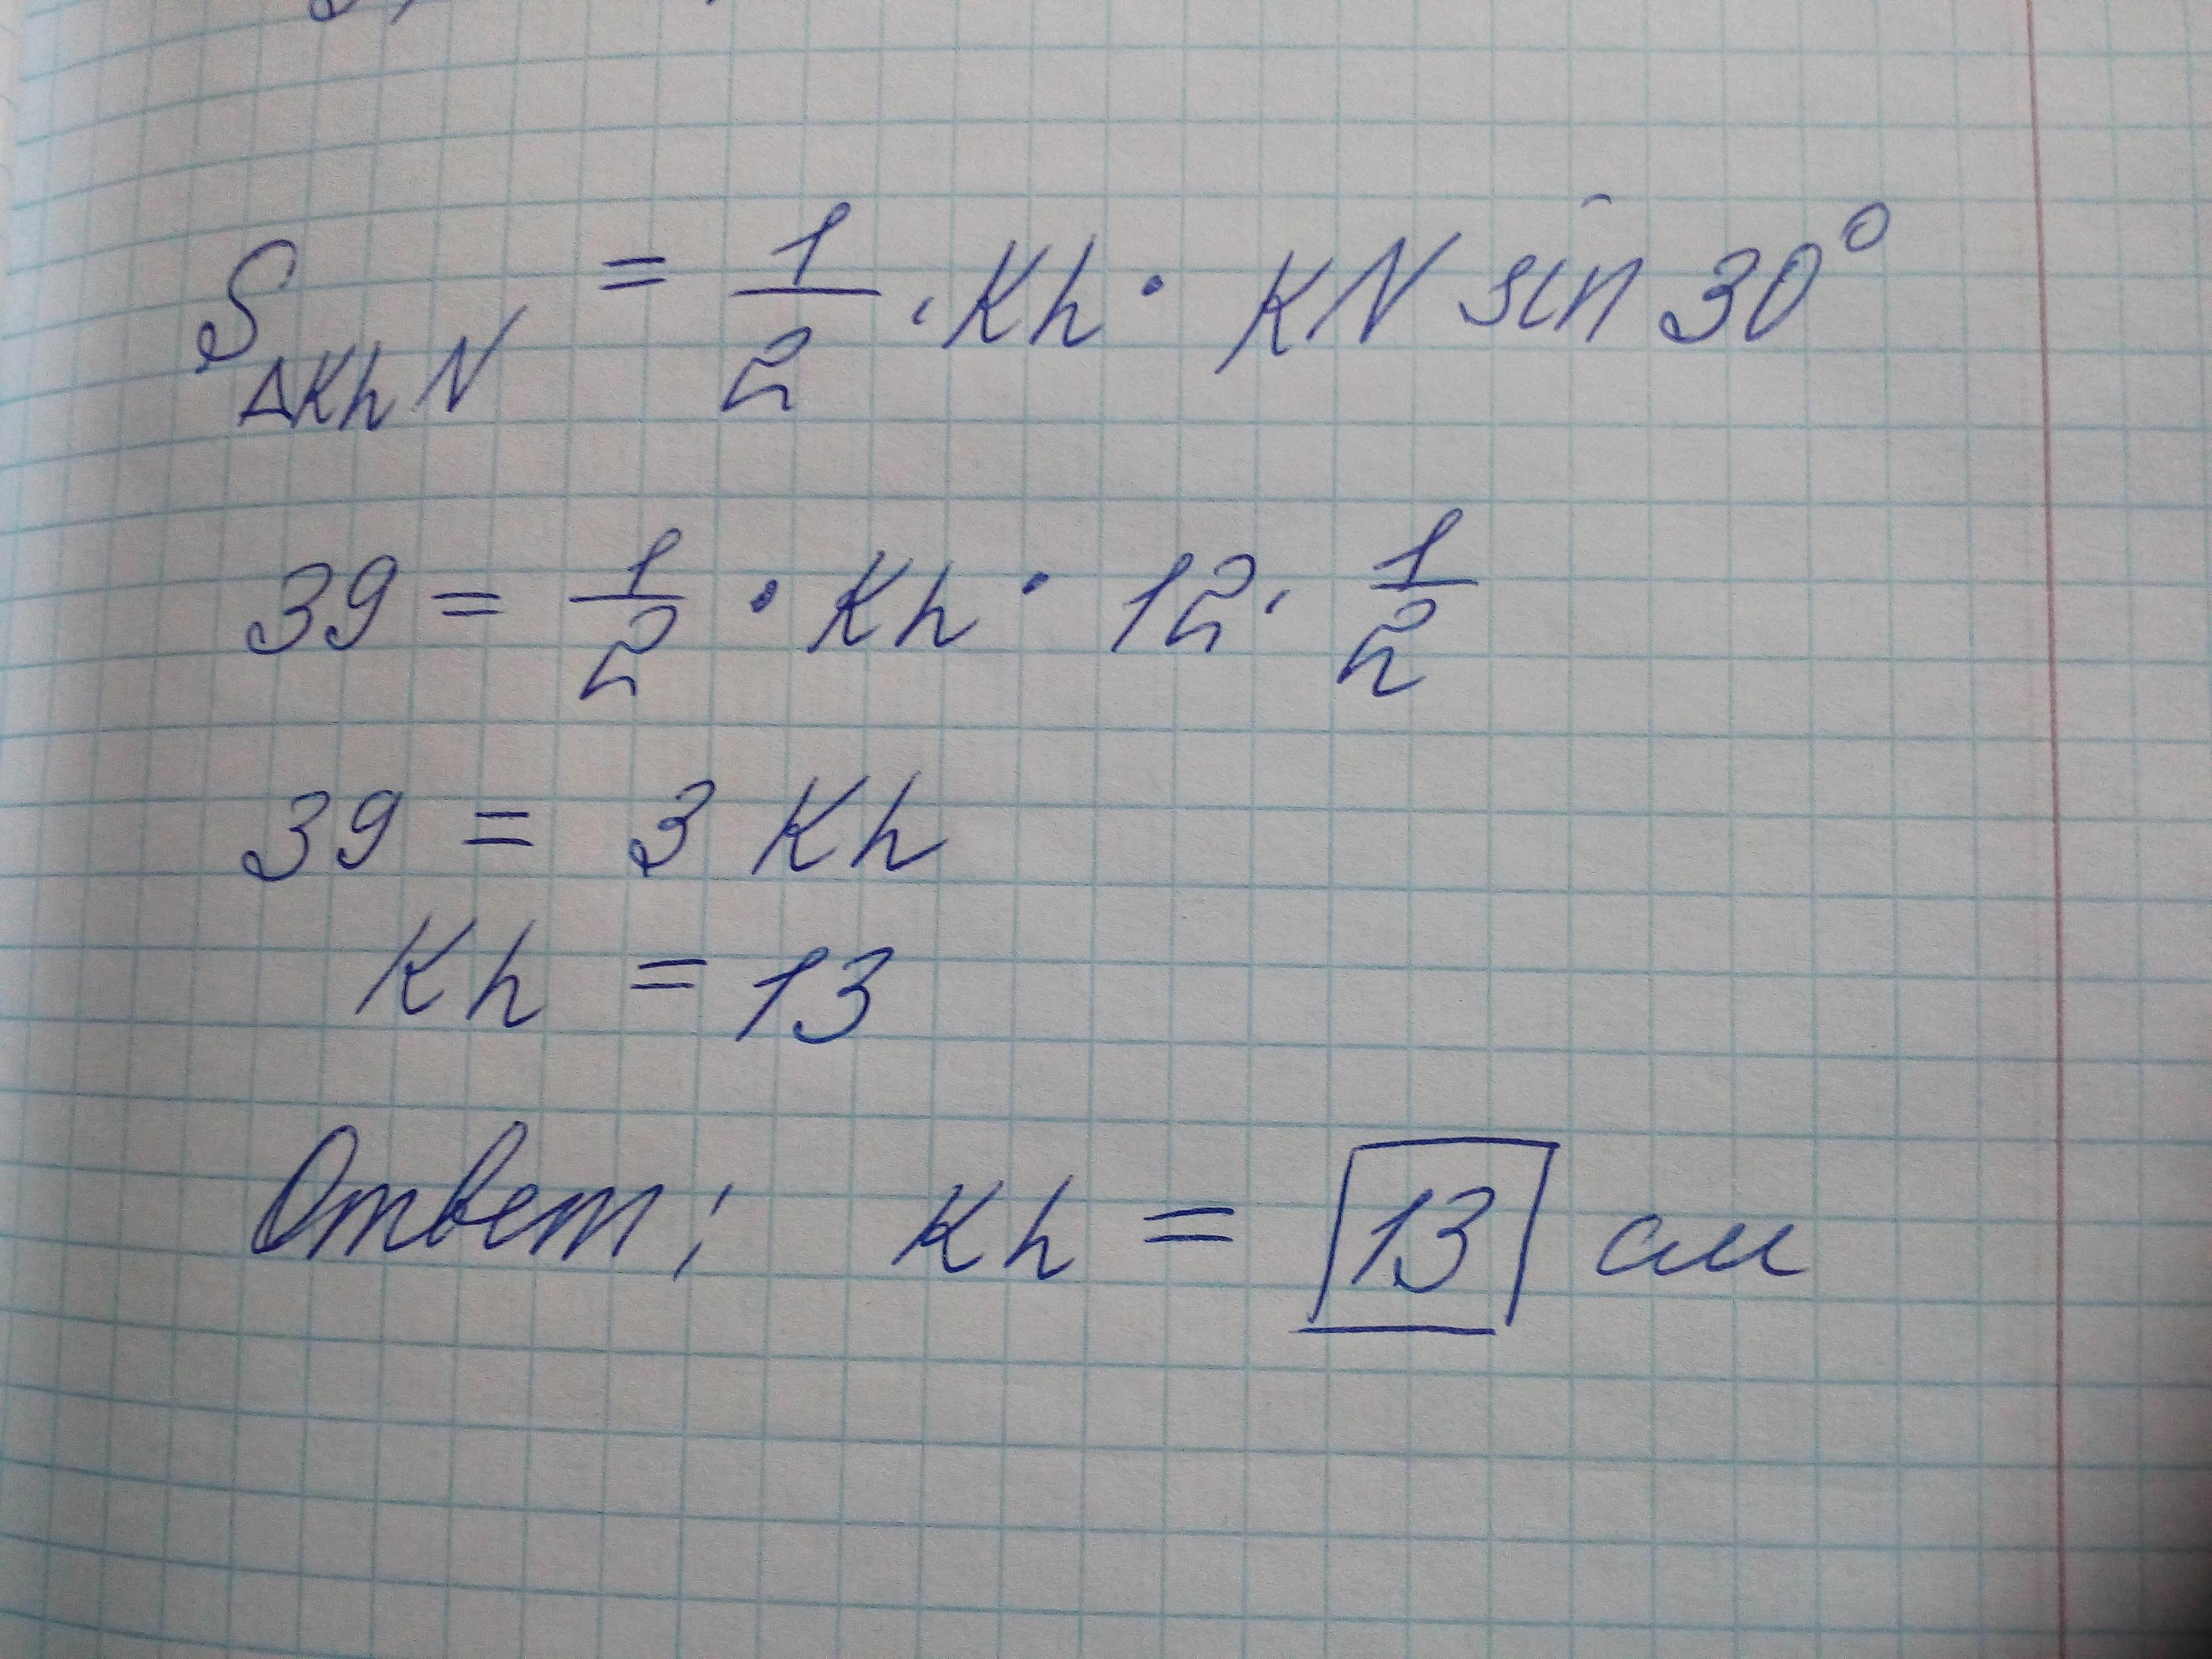 S△KhN = 1/2 · Kh · KN sin 30°
39 = 1/2 · Kh · 12 · 1/2
39 = 3 Kh
Kh = 13
Ответ: Kh = 13 см